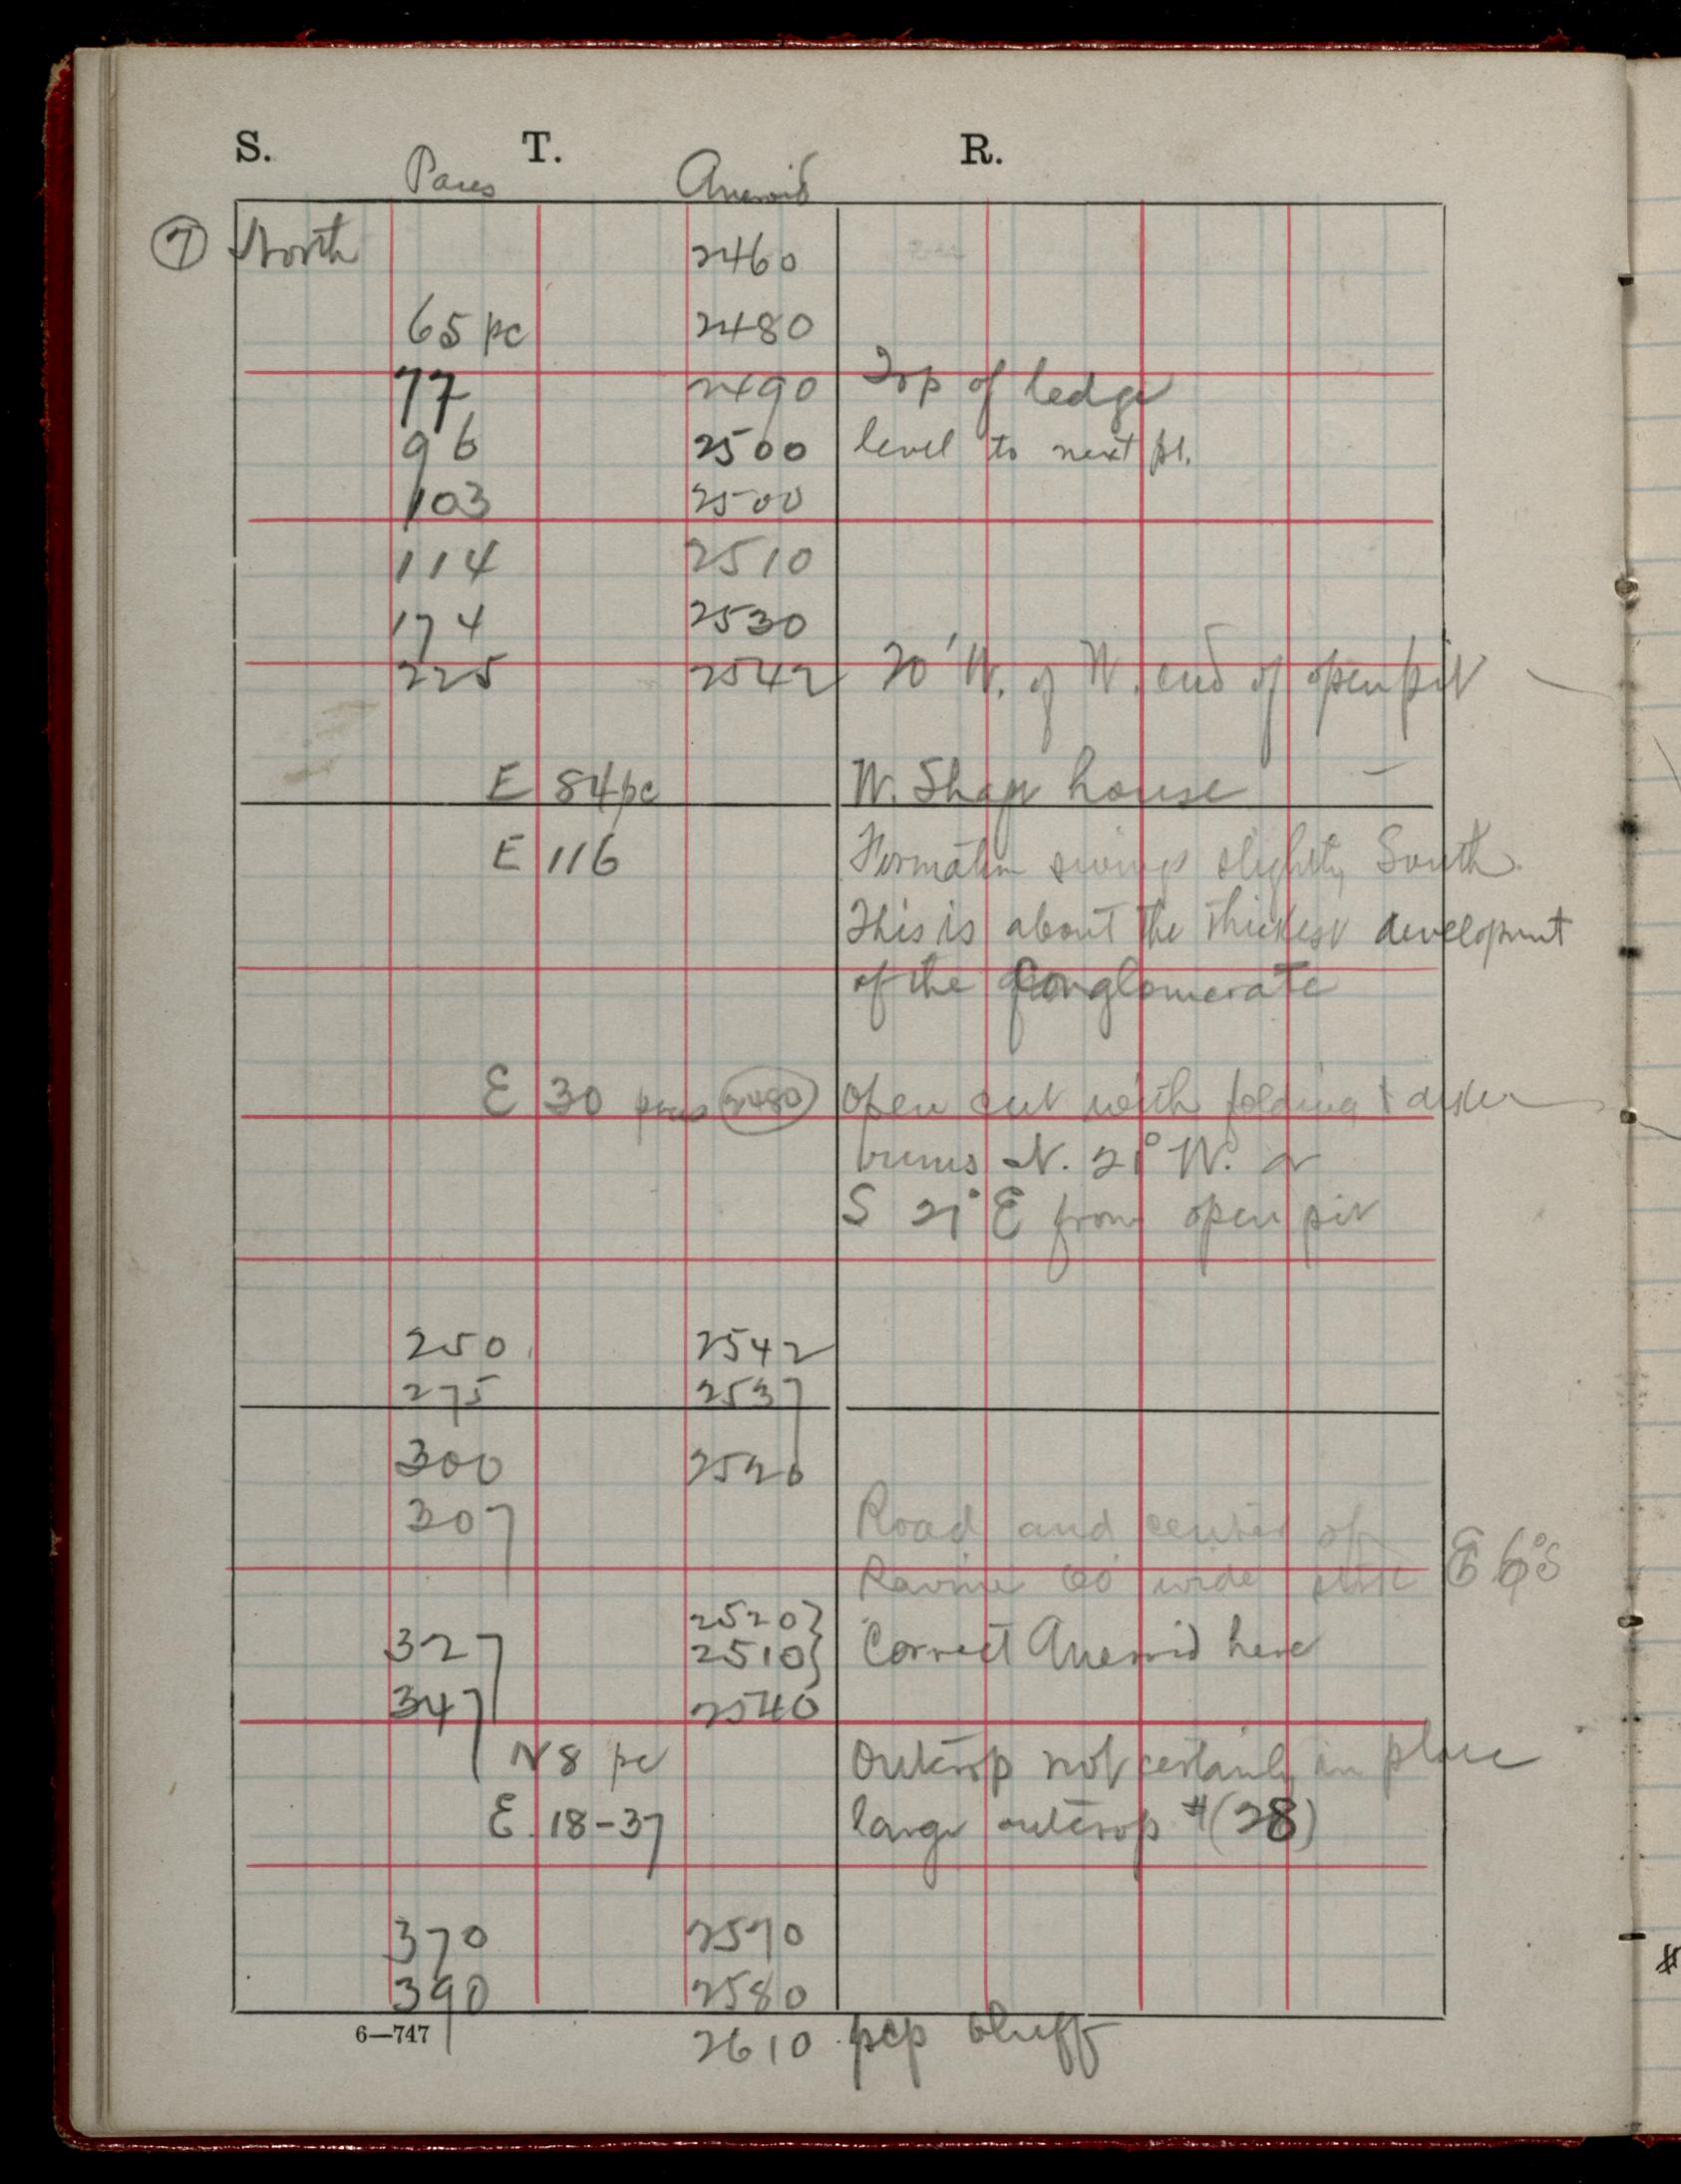 S. T. R.
Paces Aneroid
7 North 2460
65 pc 2480
77 2490 Top of ledge
96 2500 level to next pt.
103 2500
114 2510
174 2530
225 2542 20' W. of W. end of open pit
E 84 pc W. house
E 116 Formation swings slightly South.
This is about the thickest development
of the Conglomerate
E 30 paces 2480 Open cut with folding
N. 21° W.
S 21° E from open pit
250 2542
275 2537
300 2520
307 Road and center of
Ravine 60' wide E 6° S
2520}
327 2510} Correct Aneroid here
347 2540
N 8 pc Outcrop not certainly in place
E. 18-37 large outcrop #(28)
370 2570
390 2580
6—747
2610 bluff